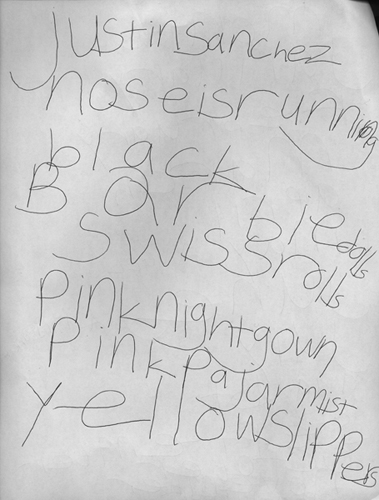 justinsanchez
noseisrunning
black
Barbiedolls
swissrolls
Pinknightgown
Pinkpajarmist
yellowslippers